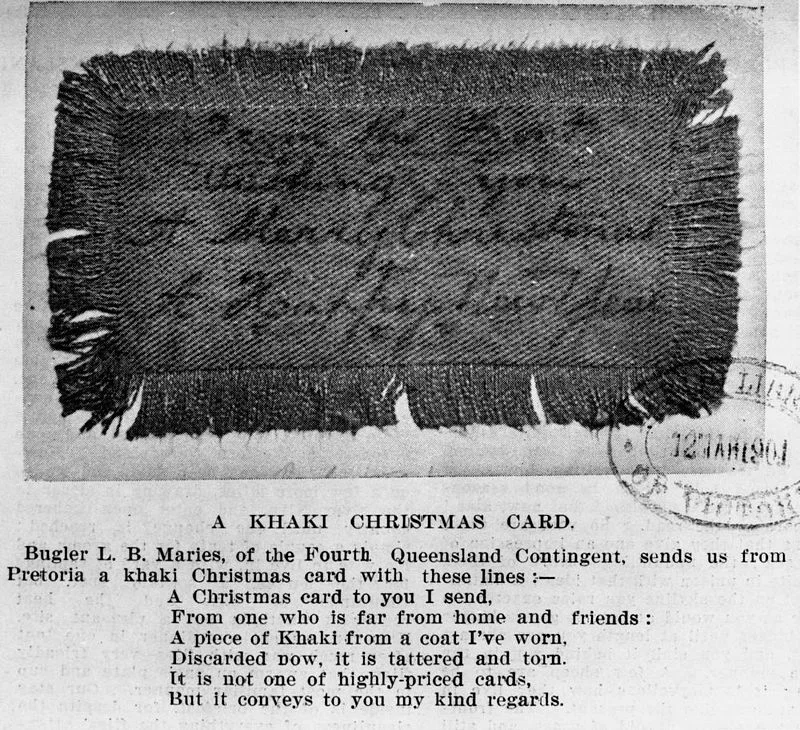 From the Front
Wishing you
A Merry Christmas
&
A Happy New Year
A KHAKI CHRISTMAS CARD.
Bugler L. B. Maries, of the Fourth Queensland Contingent, sends us from
Pretoria a khaki Christmas card with these lines :—
A Christmas card to you I send,
From one who is far from home and friends :
A piece of Khaki from a coat I've worn,
Discarded now, it is tattered and torn.
It is not one of highly-priced cards,
But it conveys to you my kind regards.
12 MAR 1901
OF VICTORIA